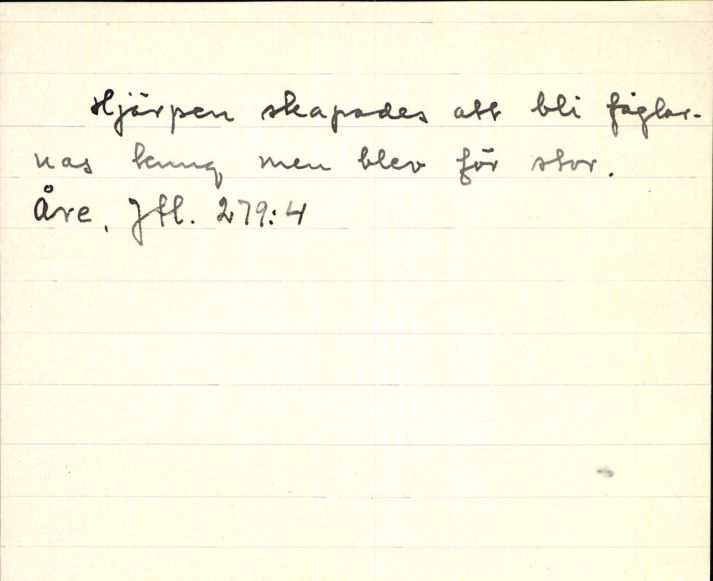 Hjärpen skapades att bli fåglar-
nas kung men blev för stor.
Åre, Jtl. 279:4